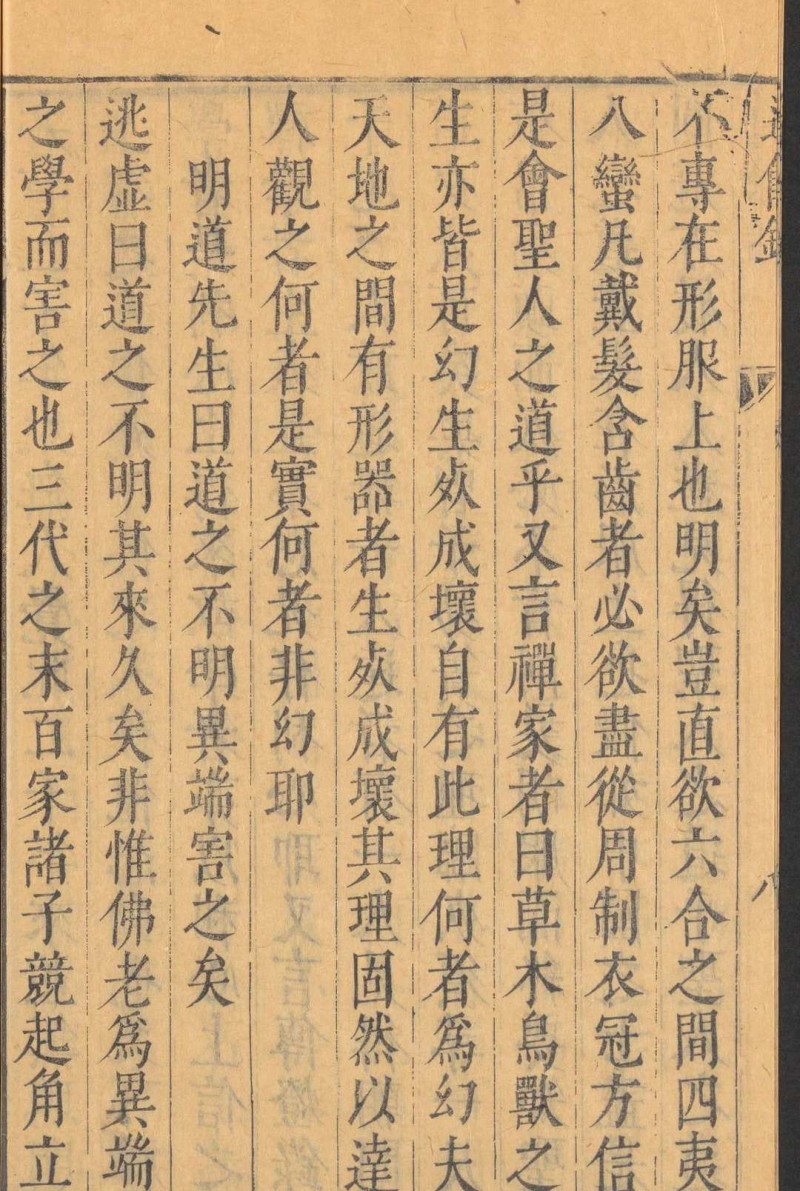 不專在形服上也明矣豈直欲六合之間四夷
八蠻凡戴髮含齒者必欲盡從周制衣冠方信
是會聖人之道乎又言禪家者曰草木鳥獸之
生亦皆是幻生㱠成壞自有此理何者爲幻夫
天地之間有形器者生㱠成壞其理固然以達
人觀之何者是實何者非幻耶
明道先生曰道之不明異端害之矣
逃虛曰道之不明其來久矣非惟佛老爲異端
之學而害之也三代之末百家諸子競起角立